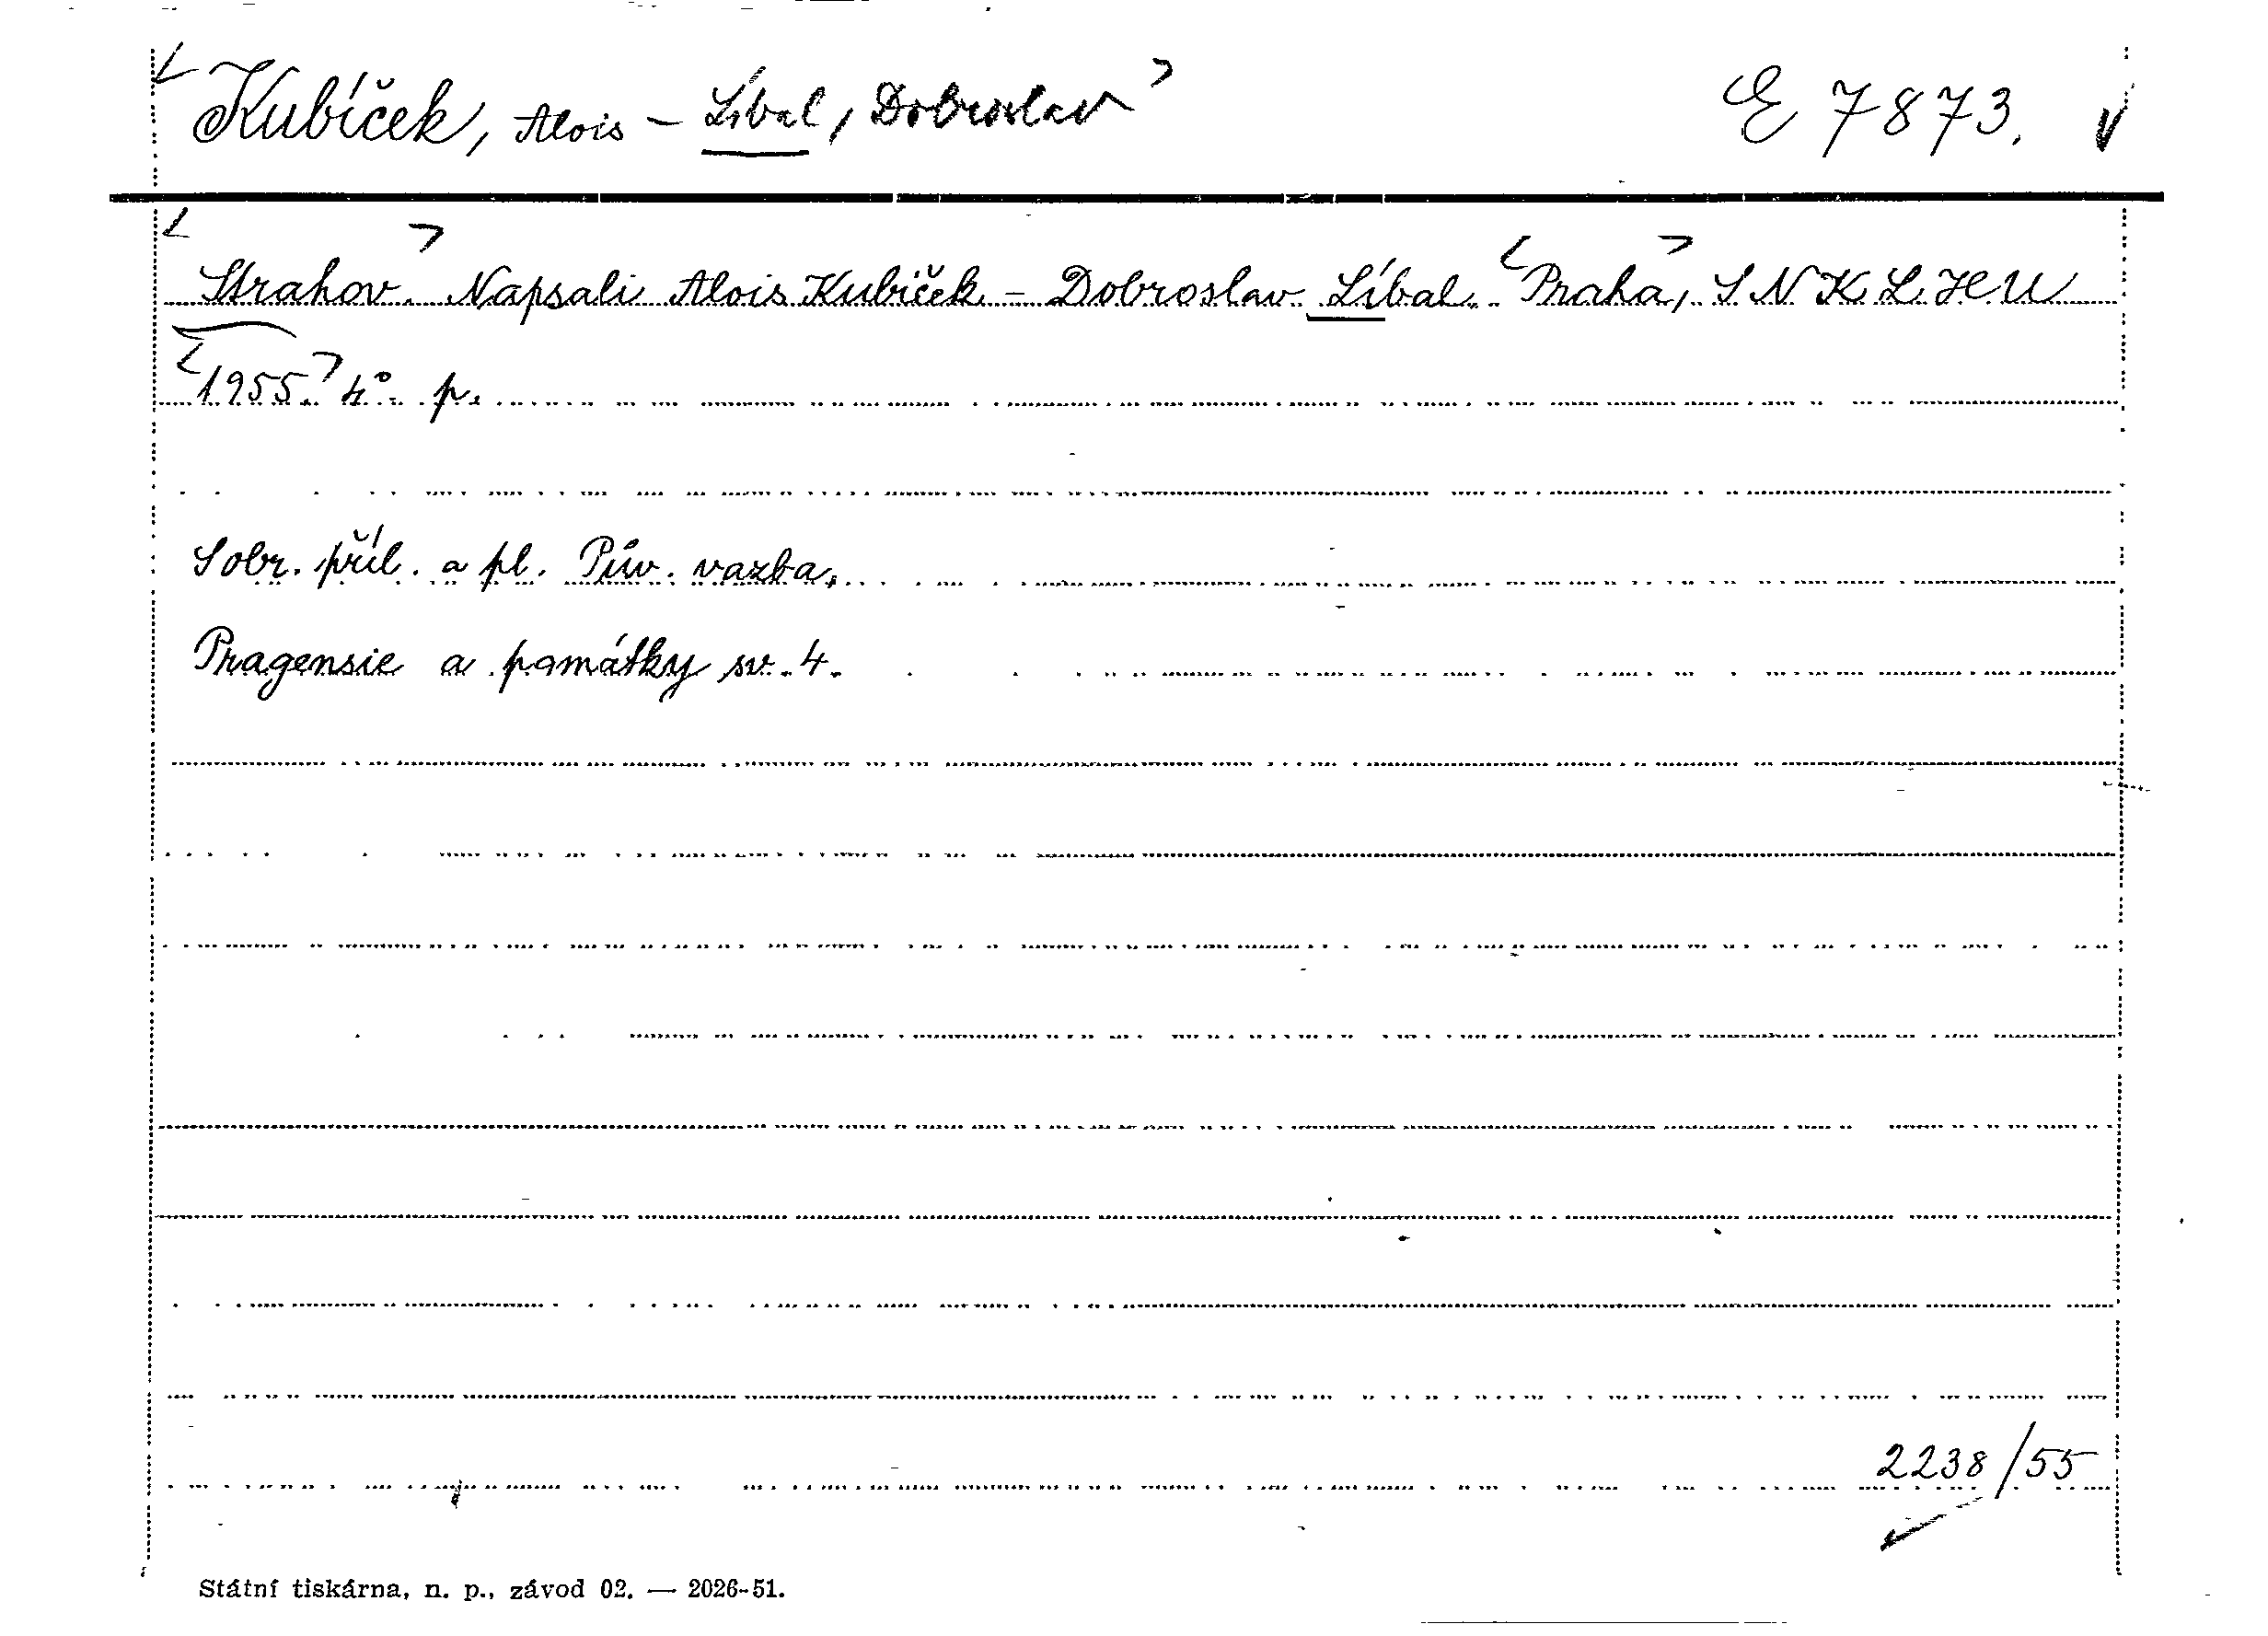 Kubíček, Alois – Líbal, Dobroslav E 7873.
Strahov. Napsali Alois Kubíček – Dobroslav Líbal. Praha, SNKLHU
1955. 4° p.
S obr. příl. a pl. Pův. vazba.
Pragensie a památky sv. 4.
2238/55
Státní tiskárna, n. p., závod 02. — 2026-51.